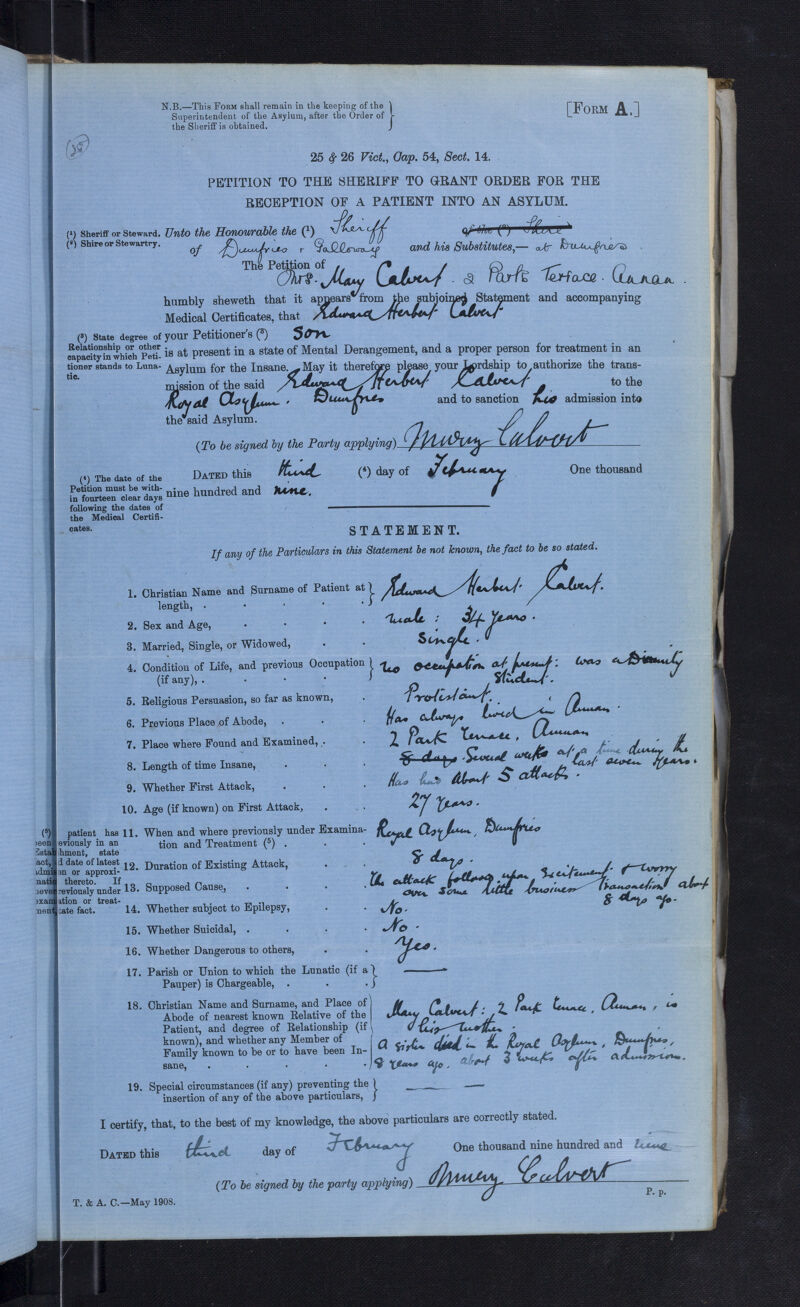 N.B.—This Form shall remain in the keeping of the
Superintendent of the Asylum, after the Order of
the Sheriff is obtained.
[Form A.]
(35)
25 & 26 Vict., Cap. 54, Sect. 14.
PETITION TO THE SHERIFF TO GRANT ORDER FOR THE
RECEPTION OF A PATIENT INTO AN ASYLUM.
(¹) Sheriff or Steward.
(²) Shire or Stewartry.
Unto the Honourable the (¹) Sheriff of the (²) Shire
of Dumfries & Galloway and his Substitutes,— at Dumfries.
The Petition of
Mrs. Mary Calvert. 2 Park Terrace. Annan.
humbly sheweth that it appears from the subjoined Statement and accompanying
Medical Certificates, that Edward Herbert Calvert
(³) State degree of
Relationship or other
capacity in which Peti-
tioner stands to Luna-
tic.
your Petitioner's (³) Son
is at present in a state of Mental Derangement, and a proper person for treatment in an
Asylum for the Insane. May it therefore please your Lordship to authorize the trans-
mission of the said Edward Herbert Calvert to the
Royal Asylum. Dumfries and to sanction his admission into
the said Asylum.
(To be signed by the Party applying) Mary Calvert
(⁴) The date of the
Petition must be with-
in fourteen clear days
following the dates of
the Medical Certifi-
cates.
Dated this third (⁴) day of February One thousand
nine hundred and nine.
STATEMENT.
If any of the Particulars in this Statement be not known, the fact to be so stated.
1. Christian Name and Surname of Patient at
length, . Edward Herbert Calvert.
2. Sex and Age, male: 34 years.
3. Married, Single, or Widowed, Single.
4. Condition of Life, and previous Occupation
(if any), . no occupation at present: was a Divinity
Student.
5. Religious Persuasion, so far as known, Protestant.
6. Previous Place of Abode, . Has always lived in Annan.
7. Place where Found and Examined, . 2 Park Terrace, Annan
8. Length of time Insane, 8 days. Several weeks at a time during the
last seven years.
9. Whether First Attack, Has had About 5 attacks.
10. Age (if known) on First Attack, 27 years.
(⁵) patient has
been eviously in an
Estab hment, state
act, d date of latest
Admis on or approxi-
mati thereto. If
never reviously under
exam ation or treat-
ment, tate fact.
11. When and where previously under Examina-
tion and Treatment (⁵) . Royal Asylum, Dumfries
12. Duration of Existing Attack, 8 days.
13. Supposed Cause, The attack follows upon Excitement & worry
over some little business transaction about
8 days ago.
14. Whether subject to Epilepsy, No.
15. Whether Suicidal, . No.
16. Whether Dangerous to others, Yes.
17. Parish or Union to which the Lunatic (if a
Pauper) is Chargeable, . —
18. Christian Name and Surname, and Place of
Abode of nearest known Relative of the
Patient, and degree of Relationship (if
known), and whether any Member of
Family known to be or to have been In-
sane,
Mary Calvert: 2 Park Terrace, Annan, is
his mother.
A sister died in the Royal Asylum, Dumfries,
8 years ago, about 3 weeks after admission.
19. Special circumstances (if any) preventing the
insertion of any of the above particulars, — —
I certify, that, to the best of my knowledge, the above particulars are correctly stated.
Dated this third day of February One thousand nine hundred and nine
(To be signed by the party applying) Mary Calvert
T. & A. C.—May 1908.
P. p.